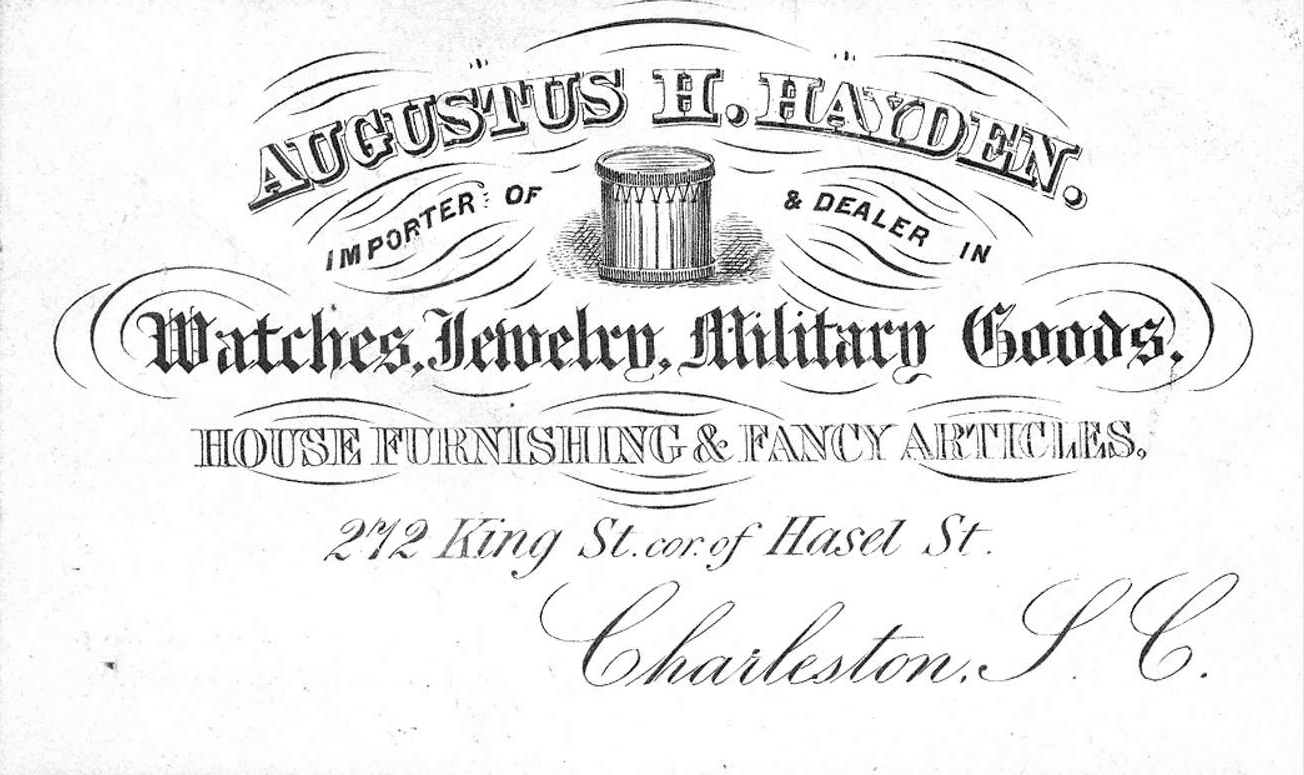 AUGUSTUS H. HAYDEN.
IMPORTER OF & DEALER IN
Watches, Jewelry, Military Goods,
HOUSE FURNISHING & FANCY ARTICLES,
272 King St. cor. of Hasel St.
Charleston, S. C.